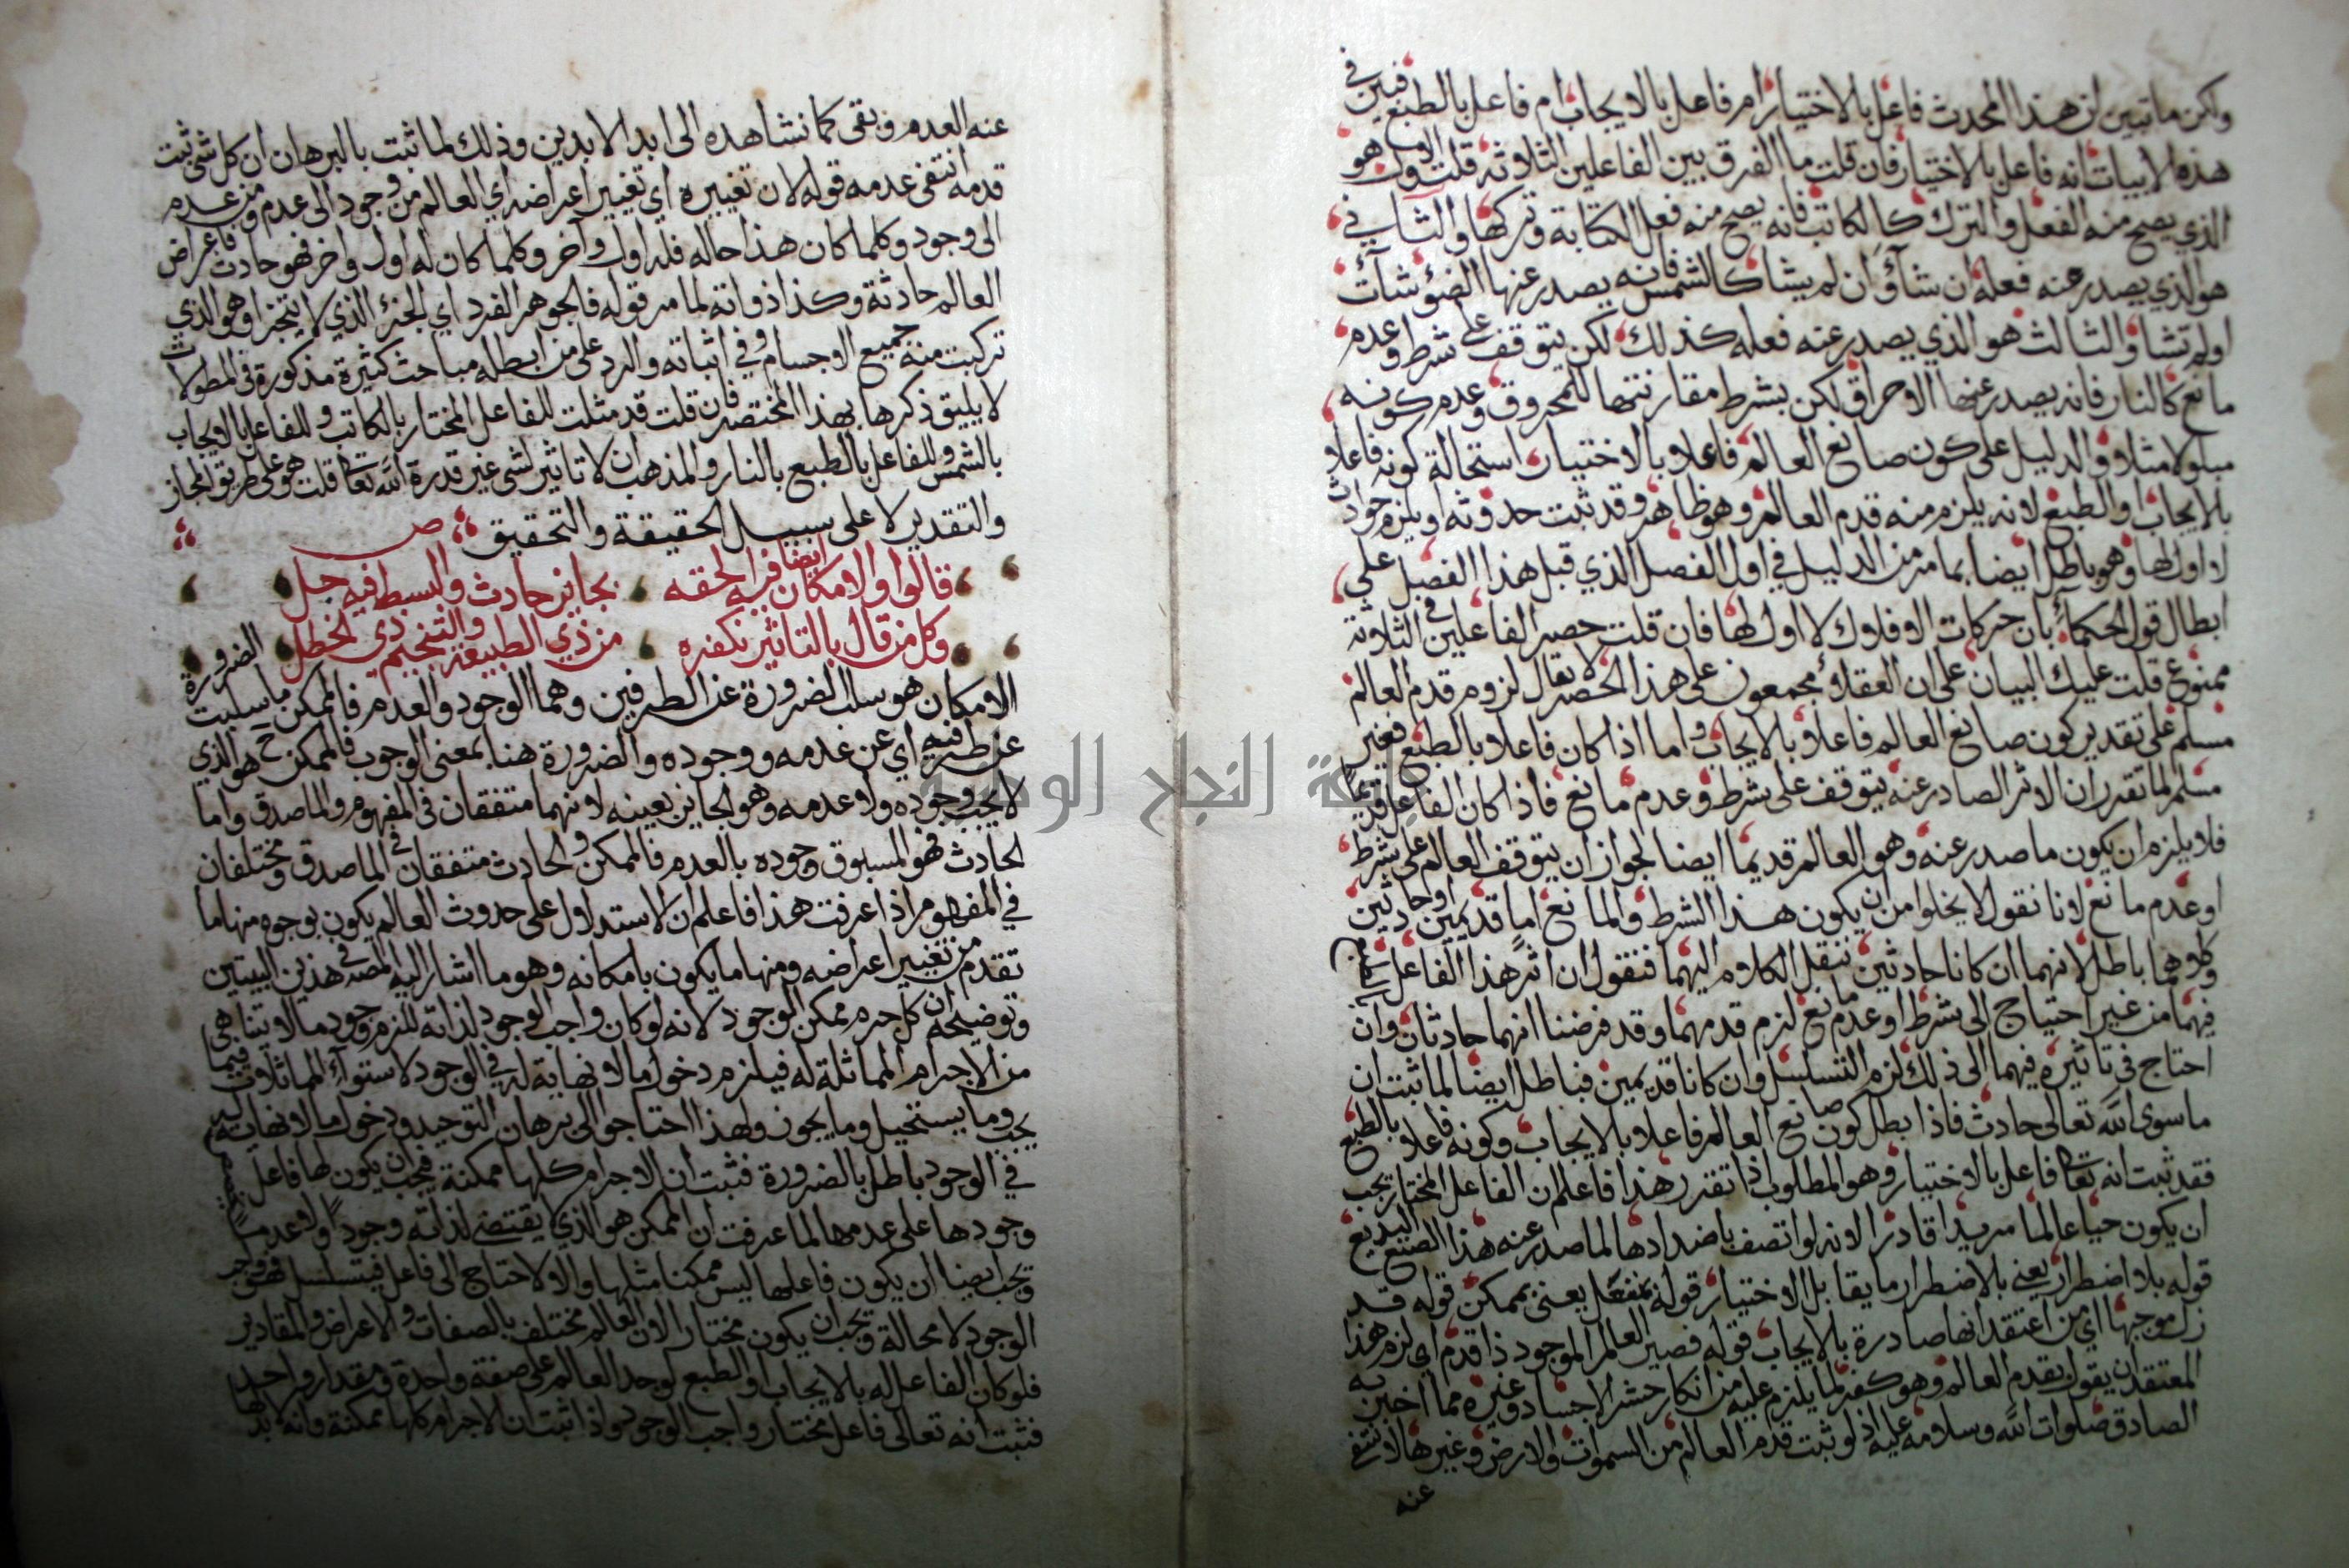 ولكن ما تبين لن هذا المحدث فاعل بالاختيار ام فاعل بالايجاب ام فاعل بالطبع فبين في
هذه الابيات انه فاعل بالاختيار فان قلت ما الفرق بين الفاعلين الثلاثة قلت الاول هو
الذي يصح منه الفعل والترك كالكاتب فانه يصح منه فعل الكتابة وتركها والثاني
هو الذي يصدر عنه فعله ان شاء وان لم يشا كالشمس فانه يصدر عنها الضوء شات
او لم تشا والثالث هو الذي يصدر عنه فعله كذلك لكن يتوقف على شرط وعدم
مانع كالنار فانه يصدر عنها الاحراق لكن بشرط مقارنتها للمحروق وعدم كونه
مبلولا مثلا والدليل على كون صانع العالم فاعلا بالاختيار استحالة كونه فاعلا
بالايجاب او الطبع لانه يلزم منه قدم العالم وهو ظاهر وقد ثبت حدوثه او يلزم حوادث
لا اول لها وهو باطل ايضا بما مر من الدليل في اول الفصل الذي قبل هذا الفصل على
ابطال قول الحكماء بان حركات الافلاك لا اول لها فان قلت حصر الفاعلين في الثلاثة
ممنوع قلت عليك البيان على ان العقلاء مجمعون على هذا الحصر لا يقال لزوم قدم العالم
مسلم على تقدير كون صانع العالم فاعلا بالايجاب واما اذا كان فاعلا بالطبع فغير
مسلم لما تقرر ان الاثر الصادر عنه يتوقف على شرط وعدم مانع فاذا كان الفاعل قديما
فلا يلزم ان يكون ما صدر عنه وهو العالم قديما ايضا لجواز ان يتوقف العالم على شرط
او عدم مانع لانا نقول لا يخلوا من ان يكون هذا الشرط والمانع اما قديمين او حادثين
وكلاهما باطل لانهما ان كانا حادثين ننقل الكلام اليهما فنقول ان اثر هذا الفاعل
فيهما من غير احتياج الى شرط او عدم مانع لزم قدمهما وقد فرضنا انهما حادثان وان
احتاج في تاثيره فيهما الى ذلك لزم التسلسل وان كانا قديمين فباطل ايضا لما ثبت ان
ما سوى الله تعالى حادث فاذا بطل كون صانع العالم فاعلا بالايجاب وكونه فاعلا بالطبع
فقد ثبت انه تعا فاعل بالاختيار وهو المطلوب اذا تقرر هذا فاعلم ان الفاعل المختار يجب
ان يكون حيا عالما مريدا قادرا لانه لو اتصف باضدادها لما صدر عنه هذا الصنع البديع
قوله بلا اضطرار يعني بالاضطرار ما يقابل الاختيار قوله بمنفعل يعني بممكن قوله قد
زل موجبها اي من اعتقد انها صادرة بالايجاب قوله فصير العالم الموجود ذا قدم اي لزم هذا
المعتقد ان يقول بقدم العالم وهو كفر لما يلزم عليه من انكار حشر الاجساد وغيره مما اخبر به
الصادق صلوات الله وسلامه عليه اذ لو ثبت قدم العالم من السموات والارض وغيرها لانتفى
عنه
عنه العدم وبقى كما نشاهده الى ابد الابدين وذلك لما ثبت بالبرهان ان كل شي ثبت
قدمه انتفى عدمه قوله لان تغييره اي تغيير اعراضه اي العالم من وجود الى عدم ومن عدم
الى وجود وكلما كان هذا حاله فله اول وآخر وكلما كان له اول واخر فهو حادث فاعراض
العالم حادثة وكذا ذواته لما مر قوله فالجوهر الفرد اي الجزء الذي لا يتجزا وهو الذي
تركبت منه جميع الاجسام وفي اثباته والرد على من ابطله مباحث كثيرة مذكورة في المطولات
لا يليق ذكرها بهذا المختصر فان قلت قد مثلت للفاعل المختار بالكاتب وللفاعل بالايجاب
بالشمس وللفاعل بالطبع بالنار والمذهب ان لا تاثير لشي غير قدرة الله تعا قلت هو على طريق المجاز
والتقدير لا على سبيل الحقيقة والتحقيق ص
قالوا والامكان ايضا فيه الحقه بجايز حادث والبسط فيه جل
وكل من قال بالتاثير نكفره من ذي الطبيعة والتنجيم ذي الخطل
الامكان هو سلب الضرورة عن الطرفين وهما الوجود والعدم فالممكن ما سلبت الضرورة
عن طرفيه اي عن عدمه ووجوده والضرورة هنا بمعنى الوجوب فالممكن ح هو الذي
لا يجب وجوده ولا عدمه وهو الجايز بعينه لانهما متفقان في المفهوم والماصدق واما
الحادث فهو المسبوق وجوده بالعدم فالممكن والحادث متفقان في الماصدق ومختلفان
في المفهوم اذا عرفت هذا فاعلم ان الاستدلال على حدوث العالم يكون بوجوه منها ما
تقدم من تغيير اعراضه ومنها ما يكون بامكانه وهو ما اشار اليه المص في هذين البيتين
وتوضيحه ان كل جرم ممكن الوجود لانه لو كان واجب الوجود لذاته للزم وجود ما لا يتناهى
من الاجرام المماثلة له فيلزم دخول ما لا نهاية له في الوجود لاستواء المماثلات فيما
يجب وما يستحيل وما يجوز ولهذا احتاجوا الى برهان التوحيد ودخول ما لا نهاية له
في الوجود باطل بالضرورة فثبت ان الاجرام كلها ممكنة فيجب ان يكون لها فاعل
وجودها على عدمها لما عرفت ان الممكن هو الذي لا يقتضى لذاته وجودا ولا عدما
ويجب ايضا ان يكون فاعلها ليس ممكنا مثلها والا لاحتاج الى فاعل فيتسلسل فهو واجب
الوجود لا محالة ويجب ان يكون مختارا لان العالم مختلف بالصفات والاعراض والمقادير
فلو كان الفاعل له بالايجاب او الطبع لوجد العالم على صفة واحدة ومقدار واحد
فثبت انه تعالى فاعل مختار واجب الوجود واذا ثبت ان الاجرام كلها ممكنة وانه لا بد لها
جامعة النجاح الوطنية